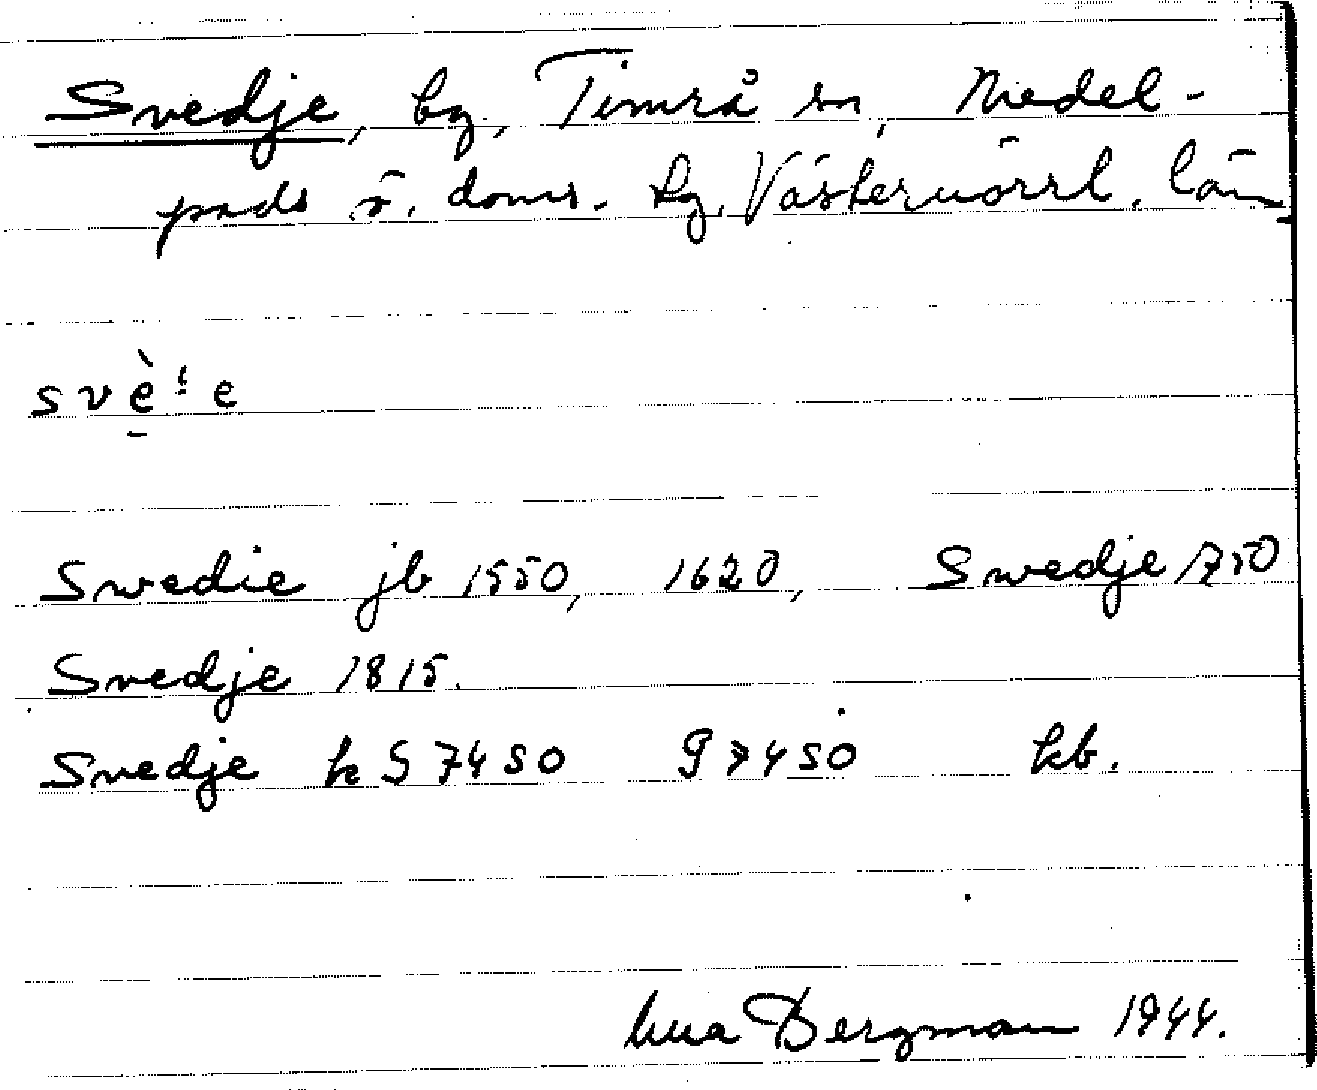 Svedje, by, Timrå sn, Medel-
pads ö. doms. hg, Västernorrl. län
svè e
Swedie jb 1550, 1620, Swedje 1750
Svedje 1815.
Svedje k S 7450 G 7450 kb.
Bergman 1944.